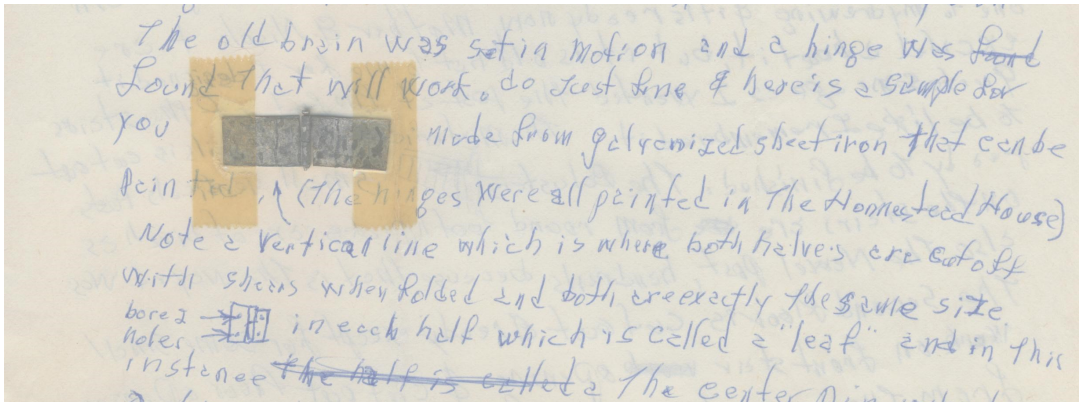 The old brain was set in motion and a hinge was found
found that will work, do Just fine & here is a sample for
you made from galvanized sheet iron that can be
painted. (The hinges were all painted in The Homestead House)
Note a vertical line which is where both halves are cut off
with shears when folded and both are exactly the same size
bore 2
holes in each half which is called a "leaf" and in this
instance the half is called a The center